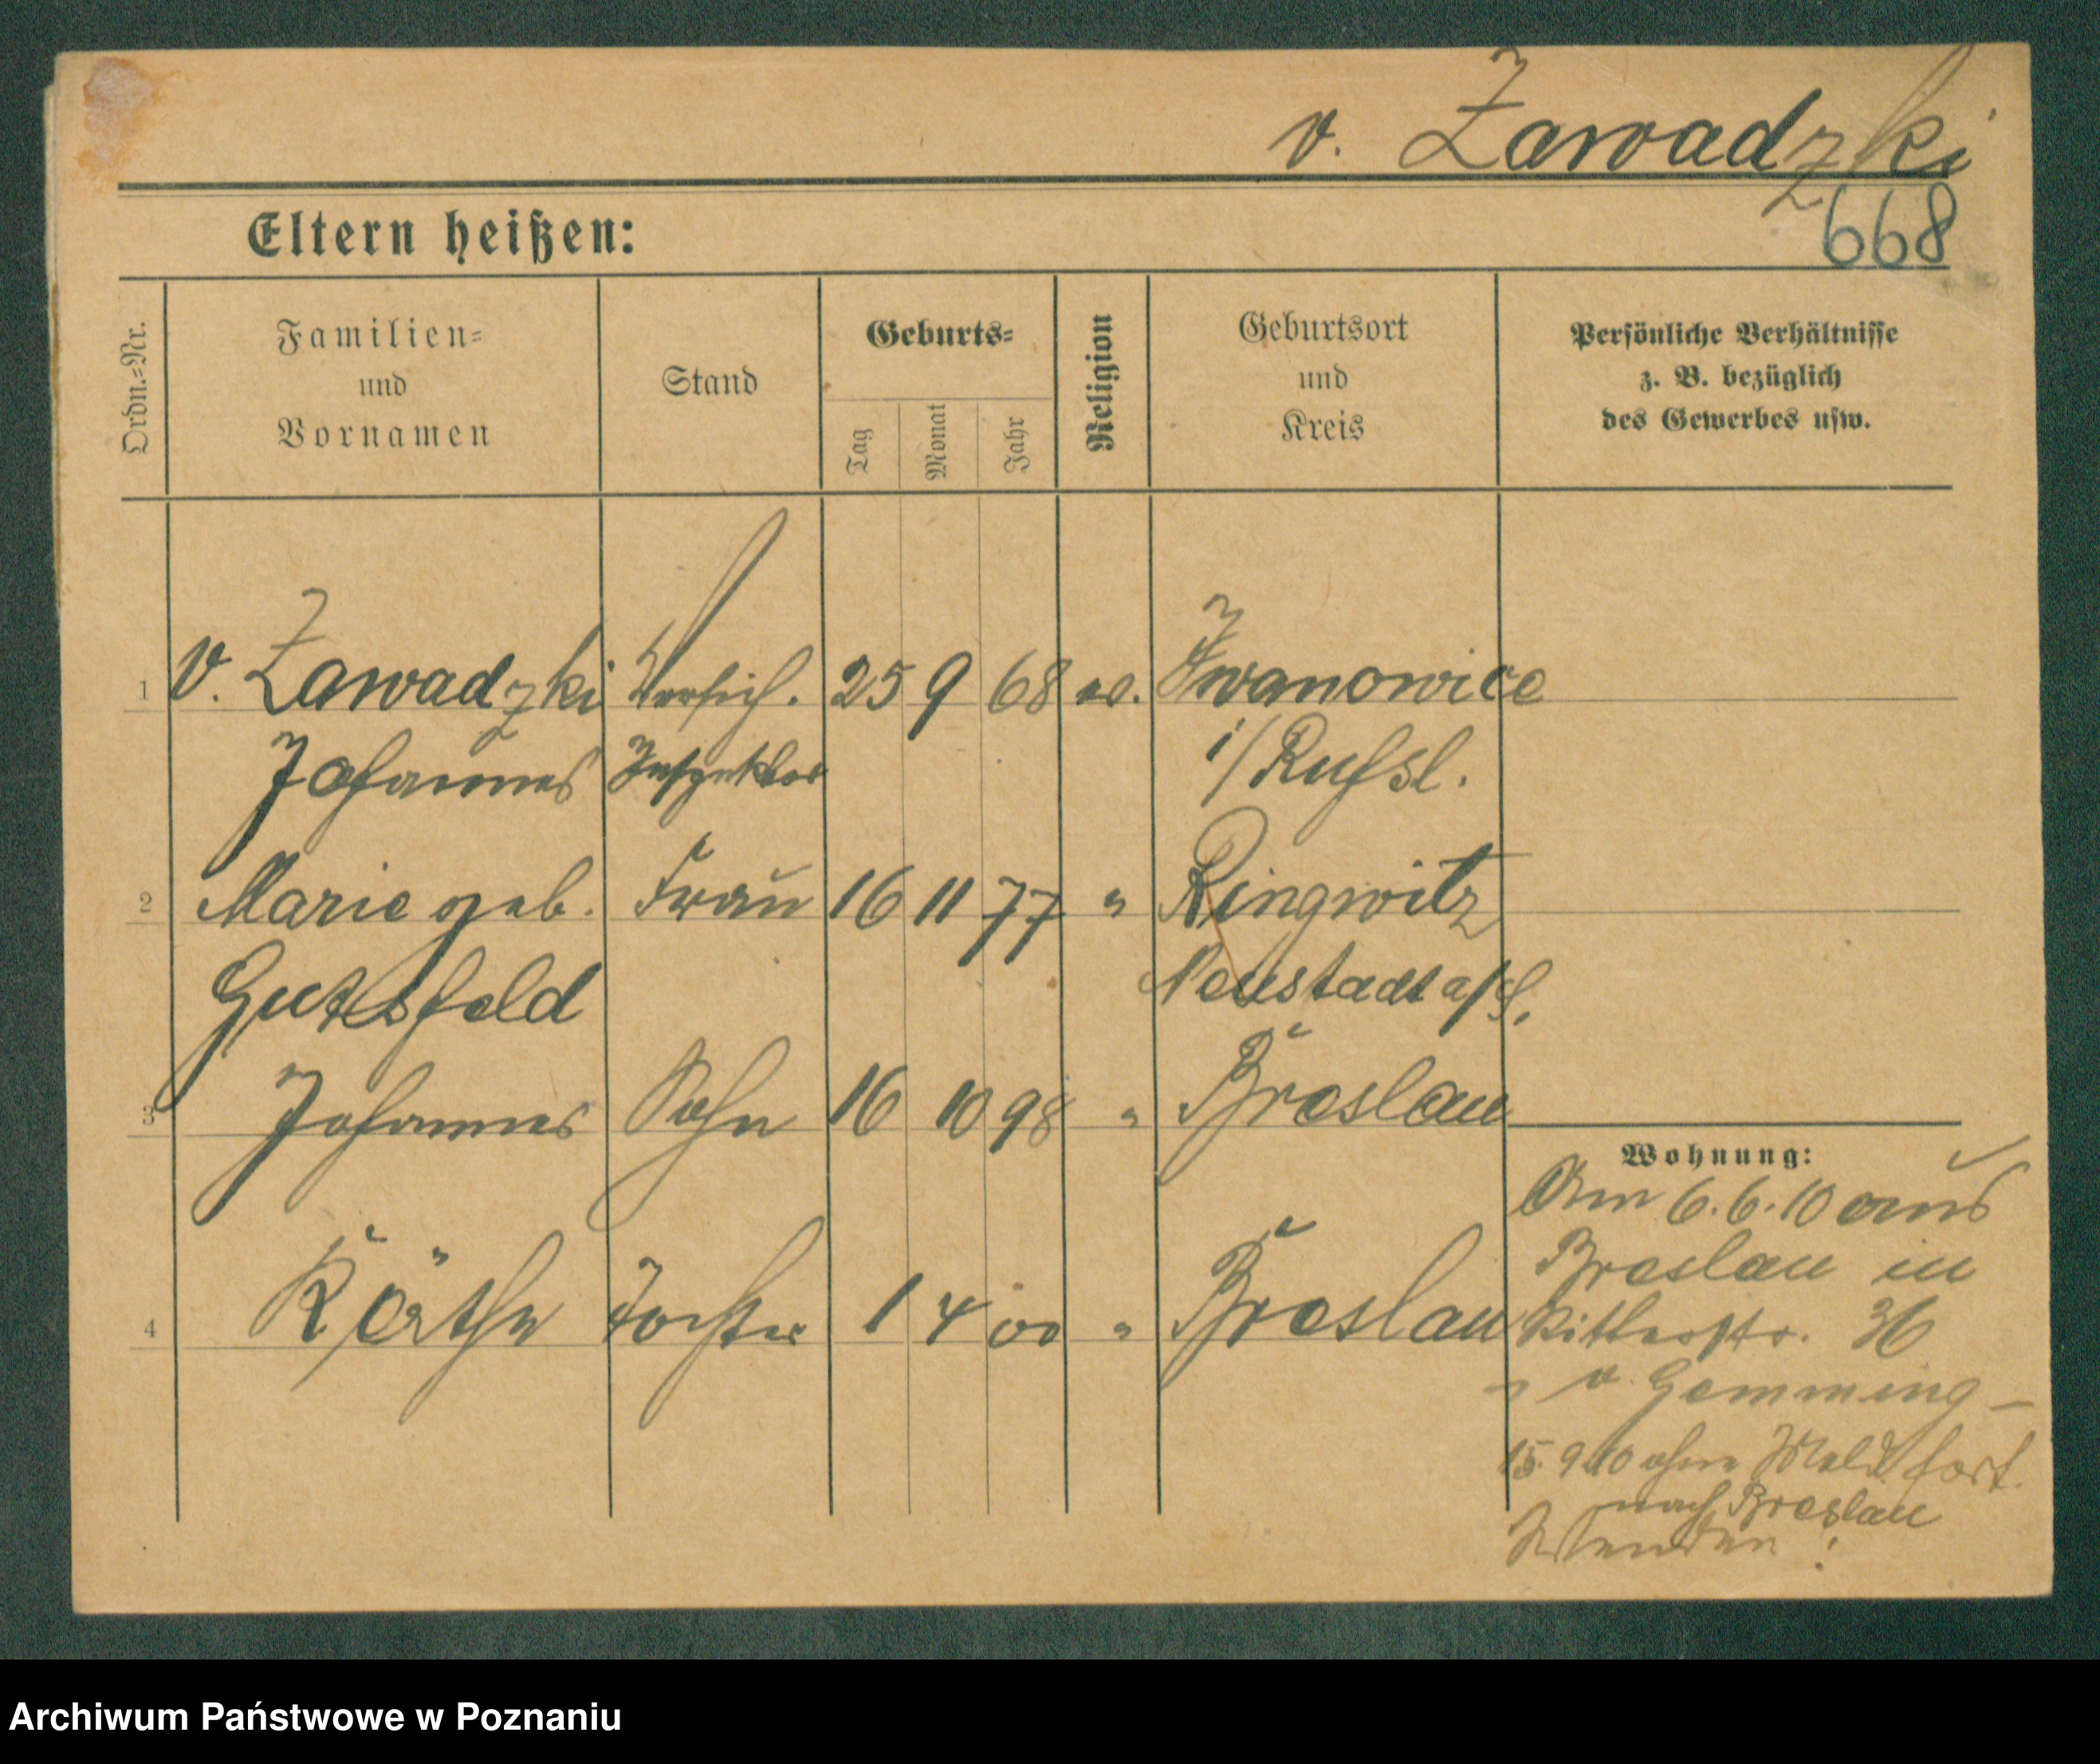 v. Zawadzki
668
Eltern heißen:
Ordn.-Nr.
Familien-
und
Vornamen
Stand
Geburts-
Tag
Monat
Jahr
Religion
Geburtsort
und
Kreis
Persönliche Verhältnisse
z. B. bezüglich
des Gewerbes usw.
1 v. Zawadzki Versich. 25 9 68 Iwanowice
Johannes Inspektor i/Russl.
2 Marie geb. Frau 16 11 77 " Ringwitz
Gutsfeld Neustadt
3 Johannes Sohn 16 10 98 " Breslau
Wohnung:
Am 6.6.10 aus
Breslau in
4 Käthe Tochter 1 4 00 " Breslau Ritterstr. 36
v. Gemming -
15.9.10 ohne Meld fort.
nach Breslau
Wenden!
Archiwum Państwowe w Poznaniu